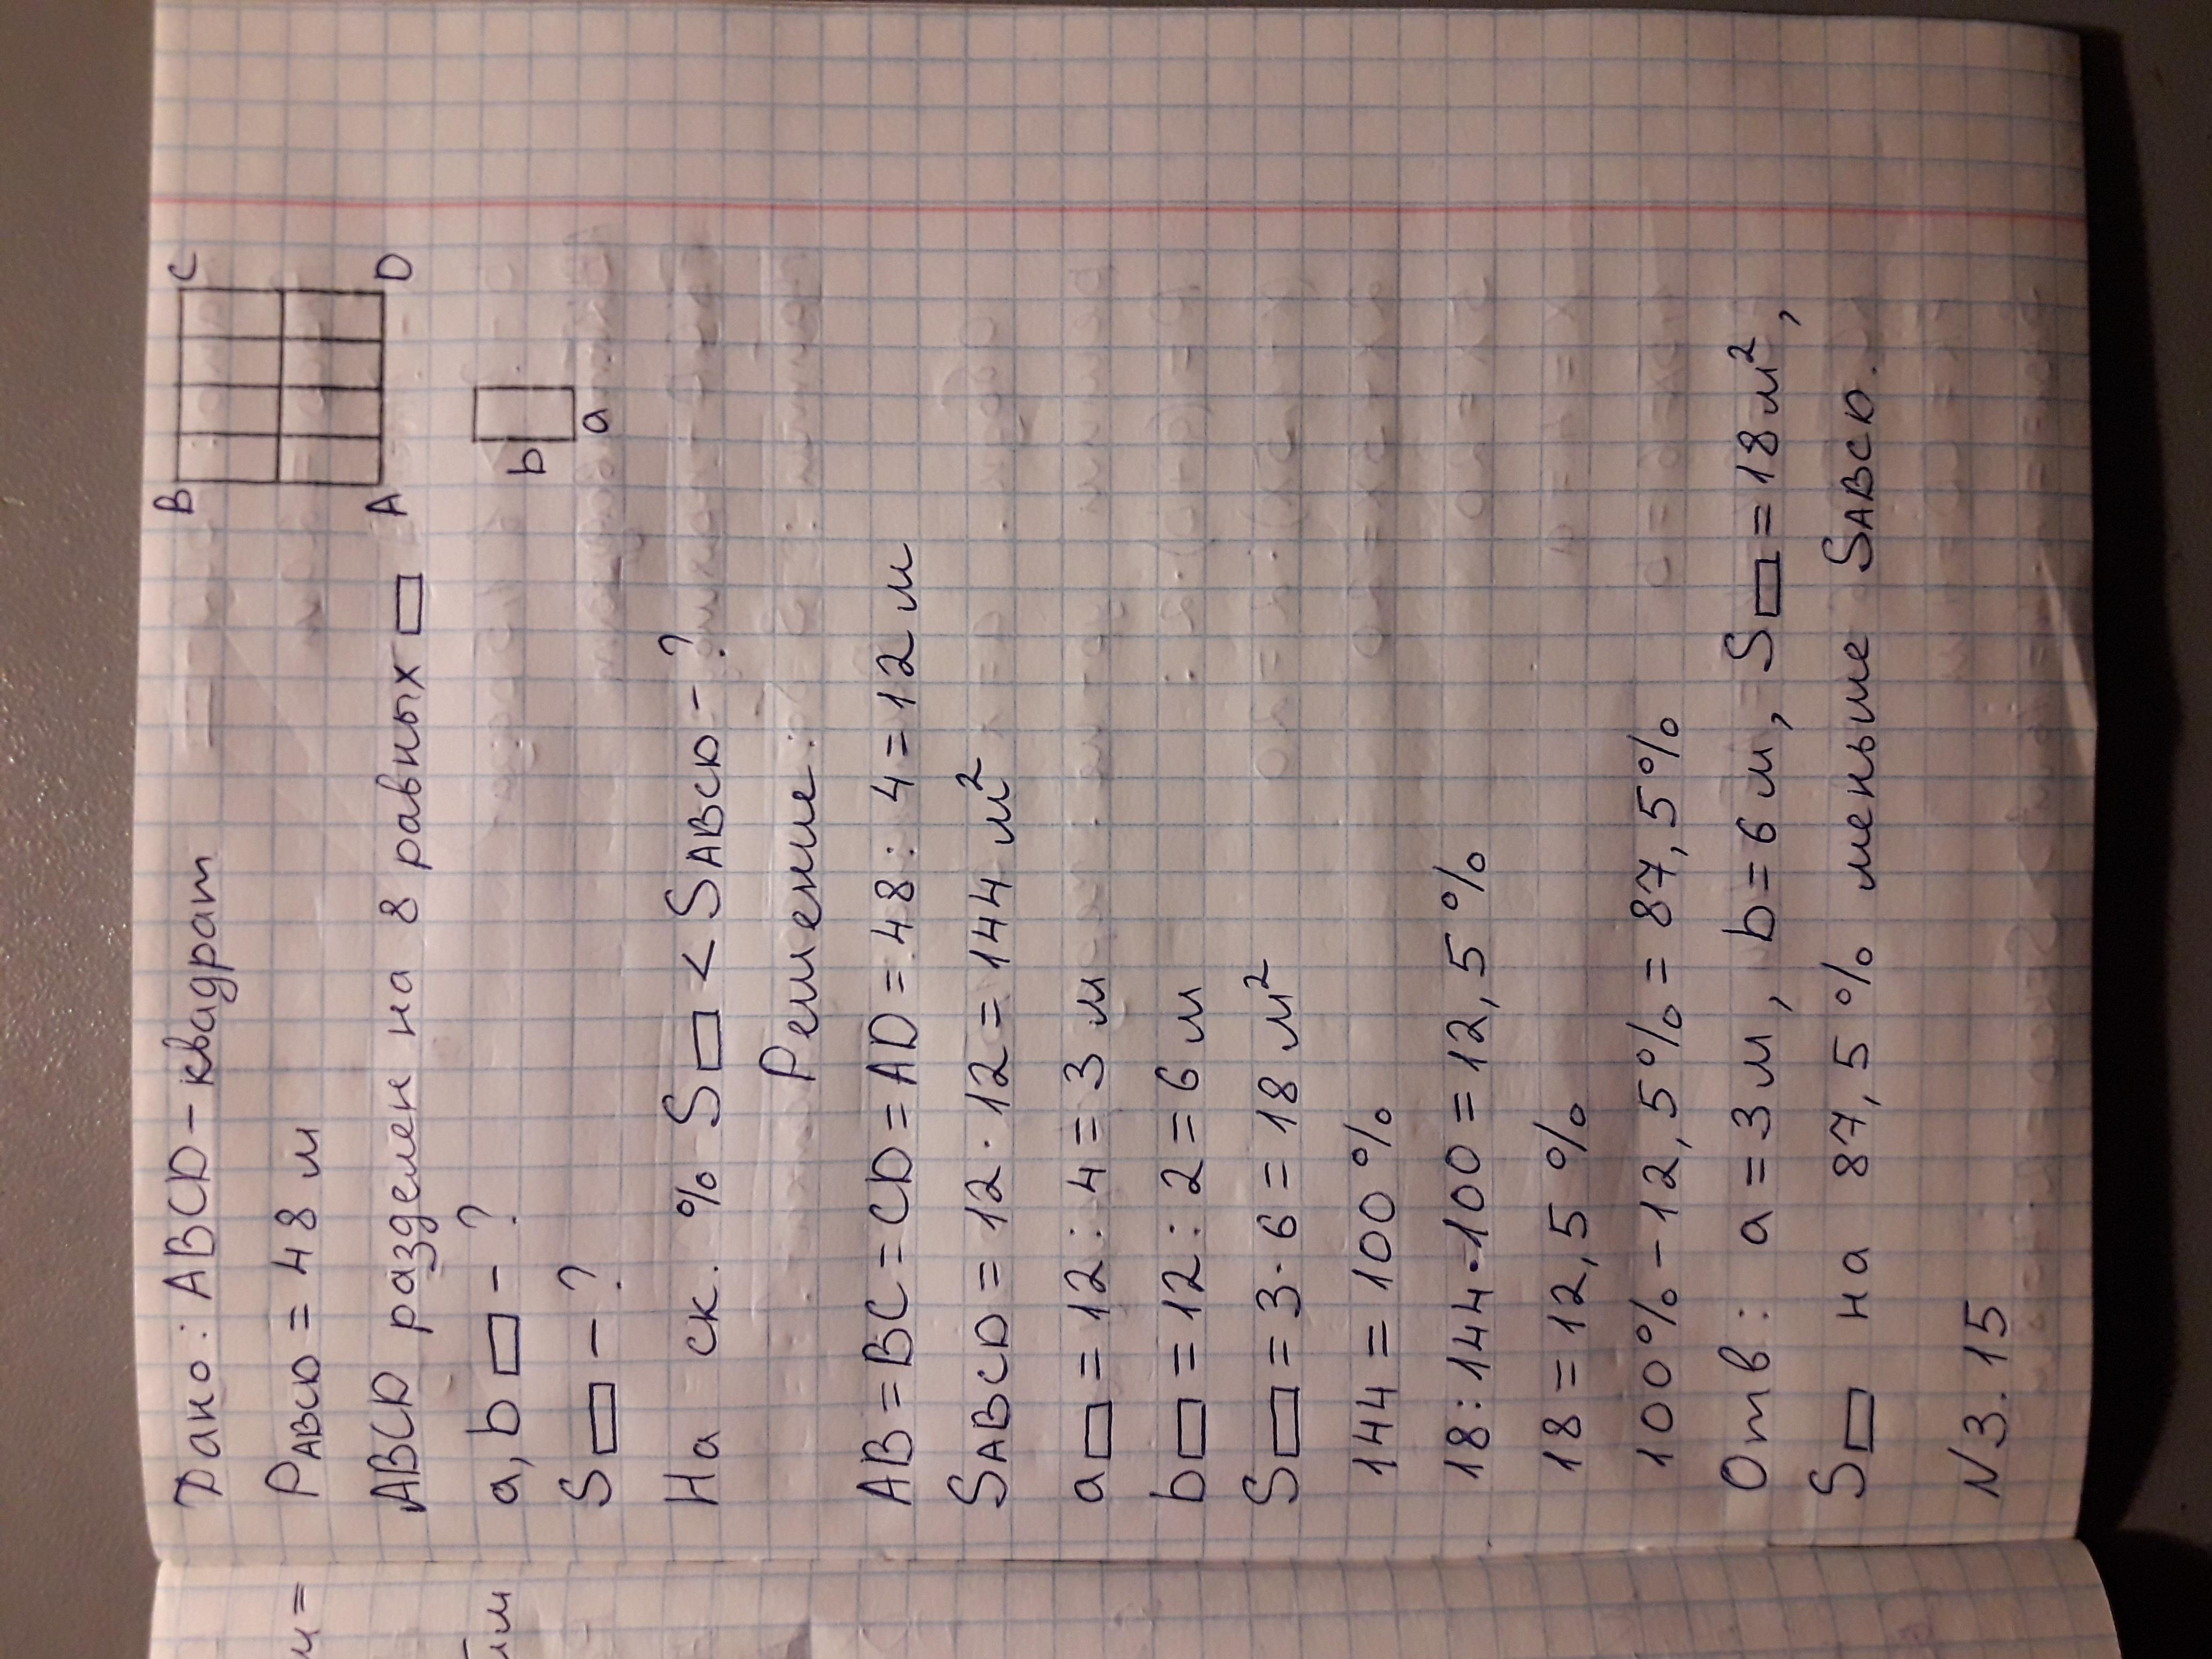 Дано: ABCD – квадрат
B C
PABCD = 48 м
ABCD разделен на 8 равных ▭
A D
a, b ▭ – ?
b
a
S▭ – ?
На ск. % S▭ < SABCD – ?
Решение:
AB = BC = CD = AD = 48 : 4 = 12 м
SABCD = 12 · 12 = 144 м²
a▭ = 12 : 4 = 3 м
b▭ = 12 : 2 = 6 м
S▭ = 3 · 6 = 18 м²
144 = 100 %
18 : 144 · 100 = 12,5 %
18 = 12,5 %
100% – 12,5% = 87,5%
Отв: a = 3 м, b = 6 м, S▭ = 18 м²,
S▭ на 87,5% меньше SABCD.
N 3.15
м =
им